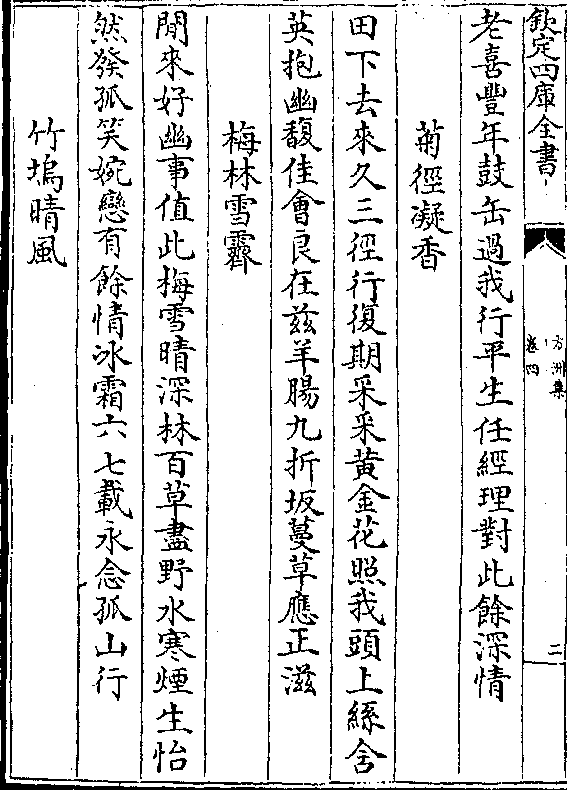 欽定四庫全書
方洲集
卷四
二
老喜豐年鼓缶過我行平生任經理對此餘深情
菊徑凝香
田下去來久三徑行復期采采黃金花照我頭上絲含
英抱幽馥佳會良在兹羊腸九折坂蔓草應正滋
梅林雪霽
閒來好幽事值此梅雪晴深林百草盡野水寒煙生怡
然發孤笑婉戀有餘情冰霜六七載永念孤山行
竹塢晴風